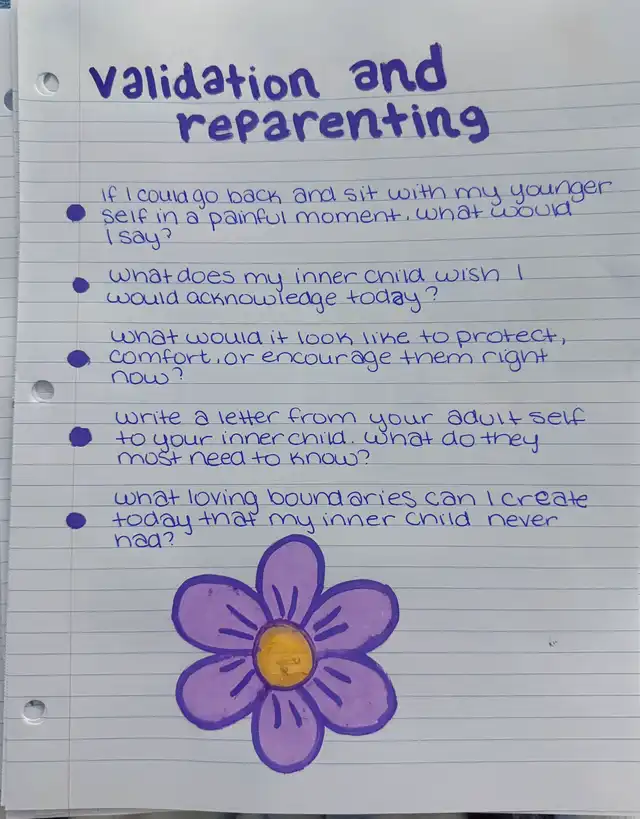 validation and
reparenting
If I could go back and sit with my younger
self in a painful moment, what would
I say?
what does my inner child wish I
would acknowledge today?
what would it look like to protect,
comfort, or encourage them right
now?
write a letter from your adult self
to your inner child. what do they
most need to know?
what loving boundaries can I create
today that my inner child never
had?